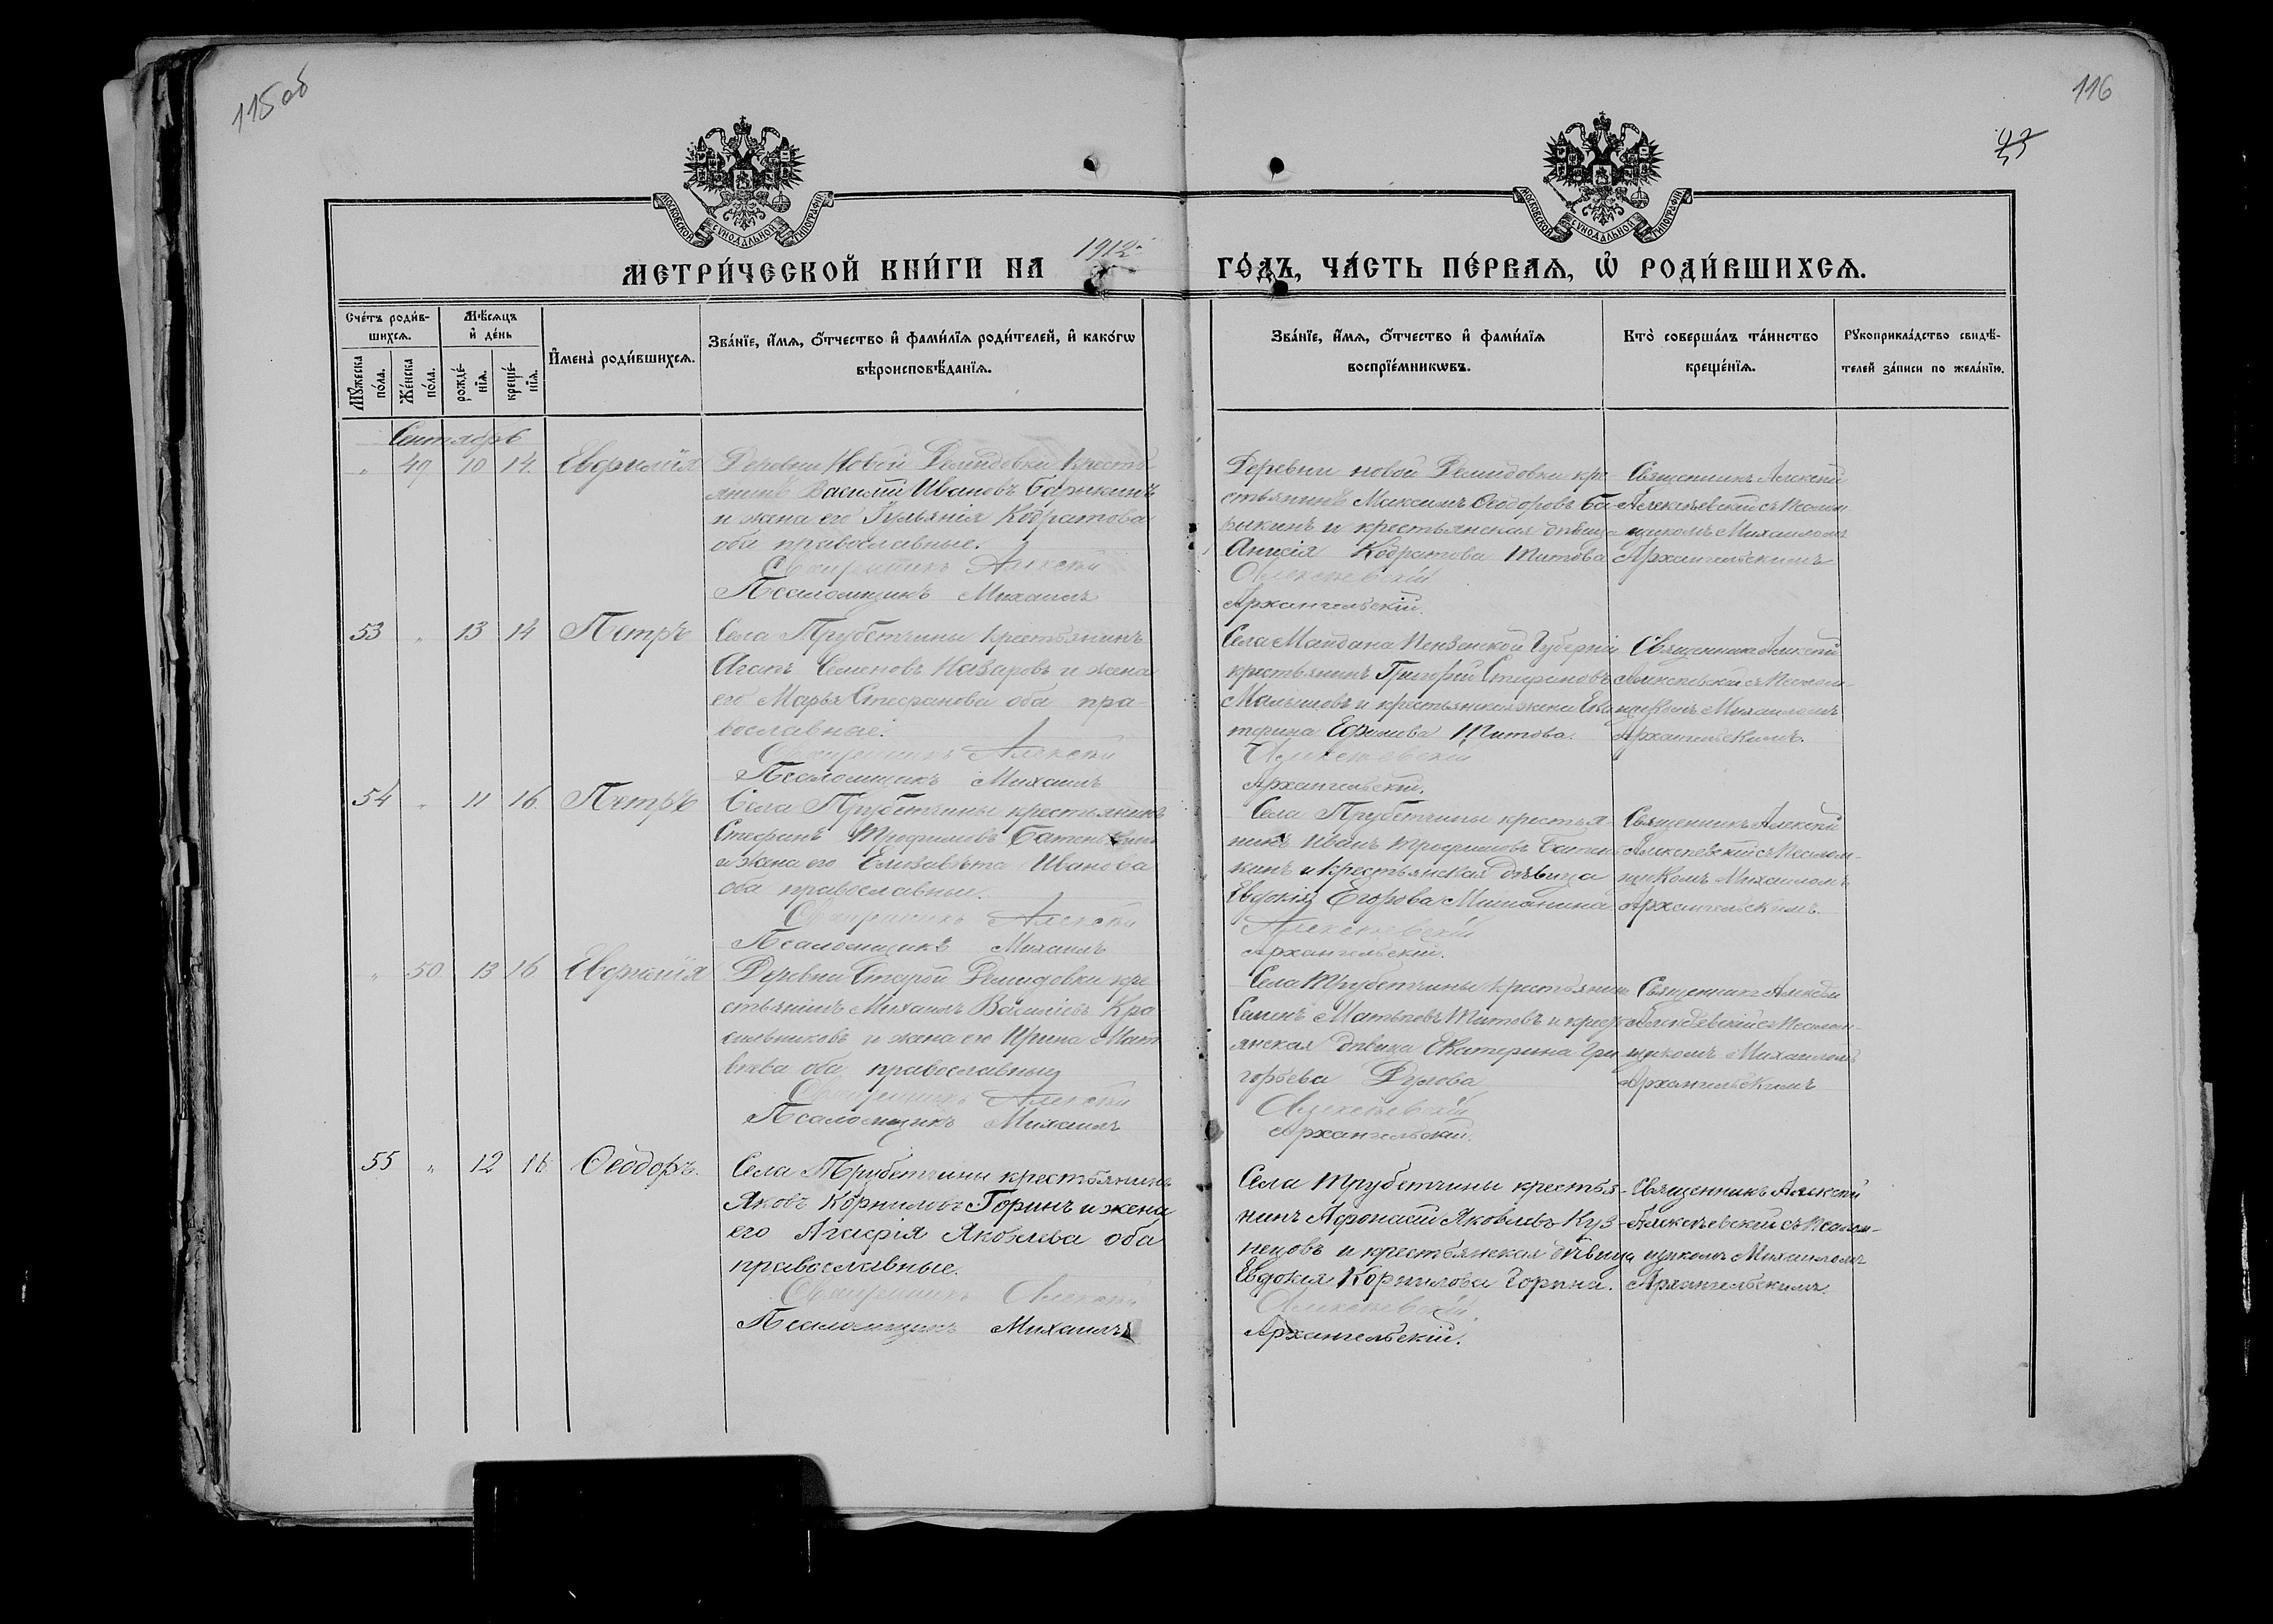 115 об
116
МОСКОВСКОЙ СУНОДАЛЬНОЙ ТИПОГРАФІИ
МОСКОВСКОЙ СУНОДАЛЬНОЙ ТИПОГРАФІИ
МЕТРИ́ЧЕСКОЙ КНИ́ГИ НА 1912 ГО́ДЪ, ЧА́СТЬ ПЕ́РВАѦ, Ѡ РОДИ́ВШИХСѦ.
Сче́тъ роди́в-
шихсѧ.
Мѣ́сѧцъ
и де́нь
Мꙋ́жеска
по́ла.
Же́нска
по́ла.
рожде́-
нїѧ.
креще́-
нїѧ.
Имена̀ роди́вшихсѧ.
Зва́нїе, и́мѧ, о́тчество и фами́лїѧ роди́телей, и како́гѡ
вѣроисповѣ́данїѧ.
Зва́нїе, и́мѧ, о́тчество и фами́лїѧ
воспрїе́мникѡвъ.
Кто̀ соверша́лъ та́инство
креще́нїѧ.
Рꙋкоприкла́дство свидѣ́-
телей за́писи по жела́нїю.
Сентябрь
" 49 10 14. Евфимія
Деревни Новой Демидовки кресть
янинъ Василій Ивановъ Барикинъ
и жена его Іульянія Кодратова
оба православные.
Священникъ Алексѣй
Псаломщикъ Михаилъ
Деревни новой Демидовки кре-
стьянинъ Максимъ Ѳеодоровъ Ба-
рикинъ и крестьянская дѣвица
Анисія Кодратова Титова
Алексѣевскій
Архангельскій.
Священникъ Алексѣй
Алексѣевскій съ Псалом-
щикомъ Михаиломъ
Архангельскимъ
53 " 13 14 Петръ
Села Трубетчины крестьянинъ
Агапъ Семеновъ Назаровъ и жена
его Марья Стефанова оба пра-
вославные.
Священникъ Алексѣй
Псаломщикъ Михаилъ
Села Майдана Пензенской Губерніи
крестьянинъ Григорій Стефановъ
Малышовъ и крестьянская жена Ека
терина Ефимова Титова.
Алексѣевскій
Архангельскій.
Священникъ Алексѣй
Алексѣевскій съ Псалом-
щикомъ Михаиломъ
Архангельскимъ.
54 " 11 16. Петръ
Села Трубетчины крестьянинъ
Стефанъ Трофимовъ Батенькинъ
и жена его Елизавѣта Иванова
оба православные.
Священникъ Алексѣй
Псаломщикъ Михаилъ
Села Трубетчины крестья-
нинъ Иванъ Трофимовъ Батень
кинъ и крестьянская дѣвица
Евдокія Егорова Мишанина
Алексѣевскій
Архангельскій.
Священникъ Алексѣй
Алексѣевскій съ Псалом-
щикомъ Михаиломъ
Архангельскимъ.
" 50 13 16 Евфимія
Деревни Старой Демидовки кре
стьянинъ Михаилъ Васильевъ Кра-
сильниковъ и жена его Ирина Мат
вѣева оба православные
Священникъ Алексѣй
Псаломщикъ Михаилъ
Села Трубетчины крестьянинъ
Семенъ Матвѣевъ Титовъ и кресть
янская дѣвица Екатерина Гри
горьева Дулова
Алексѣевскій
Архангельскій.
Священникъ Алексѣй
Алексѣевскій съ Псалом-
щикомъ Михаиломъ
Архангельскимъ
55 " 12 16 Ѳеодоръ.
Села Трубетчины крестьянинъ
Яковъ Корниловъ Горинъ и жена
его Агафія Яковлева оба
православные.
Священникъ Алексѣй
Псаломщикъ Михаилъ
Села Трубетчины крестья-
нинъ Афонасій Яковлевъ Куз-
нецовъ и крестьянская дѣвица
Евдокія Корнилова Горина.
Алексѣевскій
Архангельскій.
Священникъ Алексѣй
Алексѣевскій съ Псалом-
щикомъ Михаиломъ
Архангельскимъ.